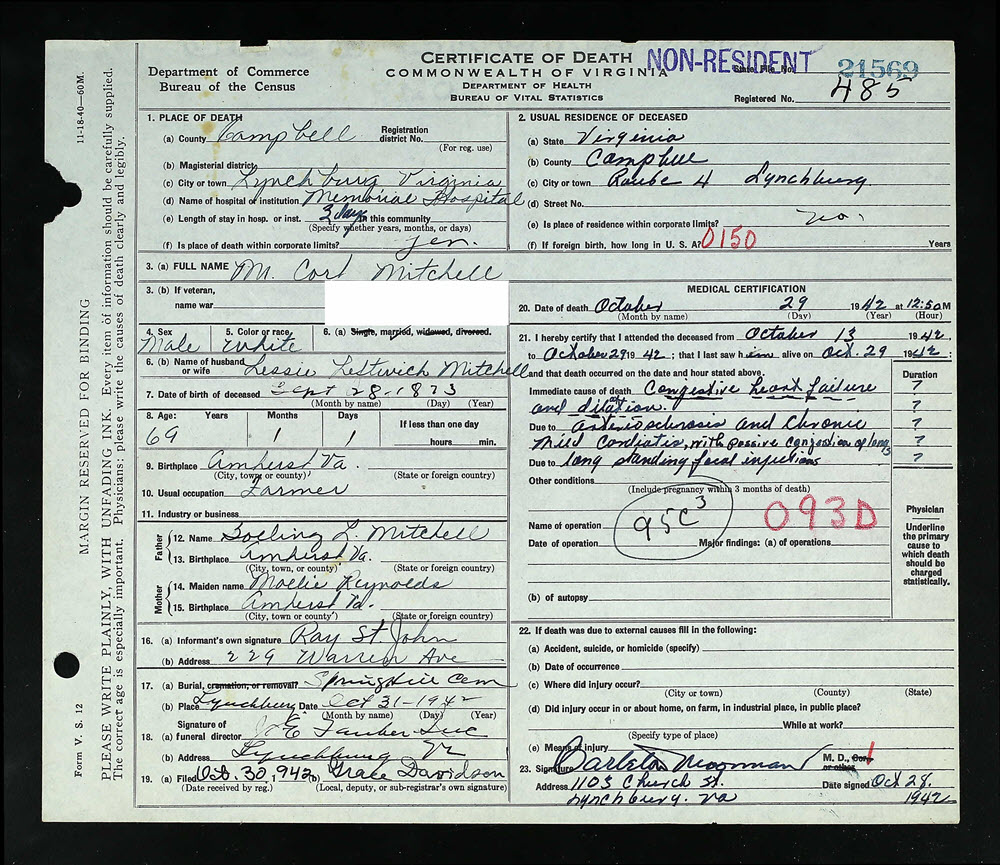 CERTIFICATE OF DEATH NON-RESIDENT
COMMONWEALTH OF VIRGINIA
DEPARTMENT OF HEALTH
BUREAU OF VITAL STATISTICS
Department of Commerce
Bureau of the Census
State File No. 21569
Registered No. 485
11-18-40—60M.
MARGIN RESERVED FOR BINDING
PLEASE WRITE PLAINLY, WITH UNFADING INK. Every item of information should be carefully supplied.
The correct age is especially important. Physicians: please write the causes of death clearly and legibly.
Form V. S. 12
1. PLACE OF DEATH
(a) County Campbell Registration district No.
(For reg. use)
(b) Magisterial district
(c) City or town Lynchburg Virginia
(d) Name of hospital or institution Memorial Hospital
(e) Length of stay in hosp. or inst. 3 days in this community
(Specify whether years, months, or days)
(f) Is place of death within corporate limits? yes.
2. USUAL RESIDENCE OF DECEASED
(a) State Virginia
(b) County Campbell
(c) City or town Route 4 Lynchburg
(d) Street No.
(e) Is place of residence within corporate limits? no.
(f) If foreign birth, how long in U. S. A? Years
0150
3. (a) FULL NAME M. Cort Mitchell
3. (b) If veteran,
name war
4. Sex Male
5. Color or race White
6. (a) Single, married, widowed, divorced.
6. (b) Name of husband or wife Lessie Leftwich Mitchell
7. Date of birth of deceased Sept 28-1873
(Month by name) (Day) (Year)
8. Age: Years Months Days If less than one day
69 1 1 hours min.
9. Birthplace Amherst Va.
(City, town or county) (State or foreign country)
10. Usual occupation Farmer
11. Industry or business
Father
12. Name Bolling L. Mitchell
13. Birthplace Amherst Va.
(City, town, or county) (State or foreign country)
Mother
14. Maiden name Mollie Reynolds
15. Birthplace Amherst Va.
(City, town, or county) (State or foreign country)
16. (a) Informant's own signature Ray St. John
(b) Address 229 Warren Ave
17. (a) Burial, cremation, or removal? Spring Hill Cem
(b) Place Lynchburg Date Oct 31-1942
(Month by name) (Day) (Year)
18. (a) Signature of funeral director
(b) Address Lynchburg Va
19. (a) Filed Oct. 30, 1942 (b) Grace Davidson
(Date received by reg.) (Local, deputy, or sub-registrar's own signature)
MEDICAL CERTIFICATION
20. Date of death October 29 1942 at 12:50 M
(Month by name) (Day) (Year) (Hour)
21. I hereby certify that I attended the deceased from October 13 1942
to October 29 1942; that I last saw him alive on Oct. 29 1942;
and that death occurred on the date and hour stated above.
Duration
Immediate cause of death Congestive heart failure ?
and dilatation. ?
Due to arteriosclerosis and chronic ?
mild carditis, with passive congestion of lungs ?
Due to long standing focal infections ?
Other conditions
(Include pregnancy within 3 months of death)
95c3
093D
Name of operation
Date of operation Major findings: (a) of operations
(b) of autopsy
Physician
Underline the primary cause to which death should be charged statistically.
22. If death was due to external causes fill in the following:
(a) Accident, suicide, or homicide (specify)
(b) Date of occurrence
(c) Where did injury occur?
(City or town) (County) (State)
(d) Did injury occur in or about home, on farm, in industrial place, in public place?
While at work?
(Specify type of place)
(e) Means of injury
23. Signature Carleton Moorman M. D., Cor. or other
Address 1103 Church St. Date signed Oct 28.
Lynchburg. Va 1942